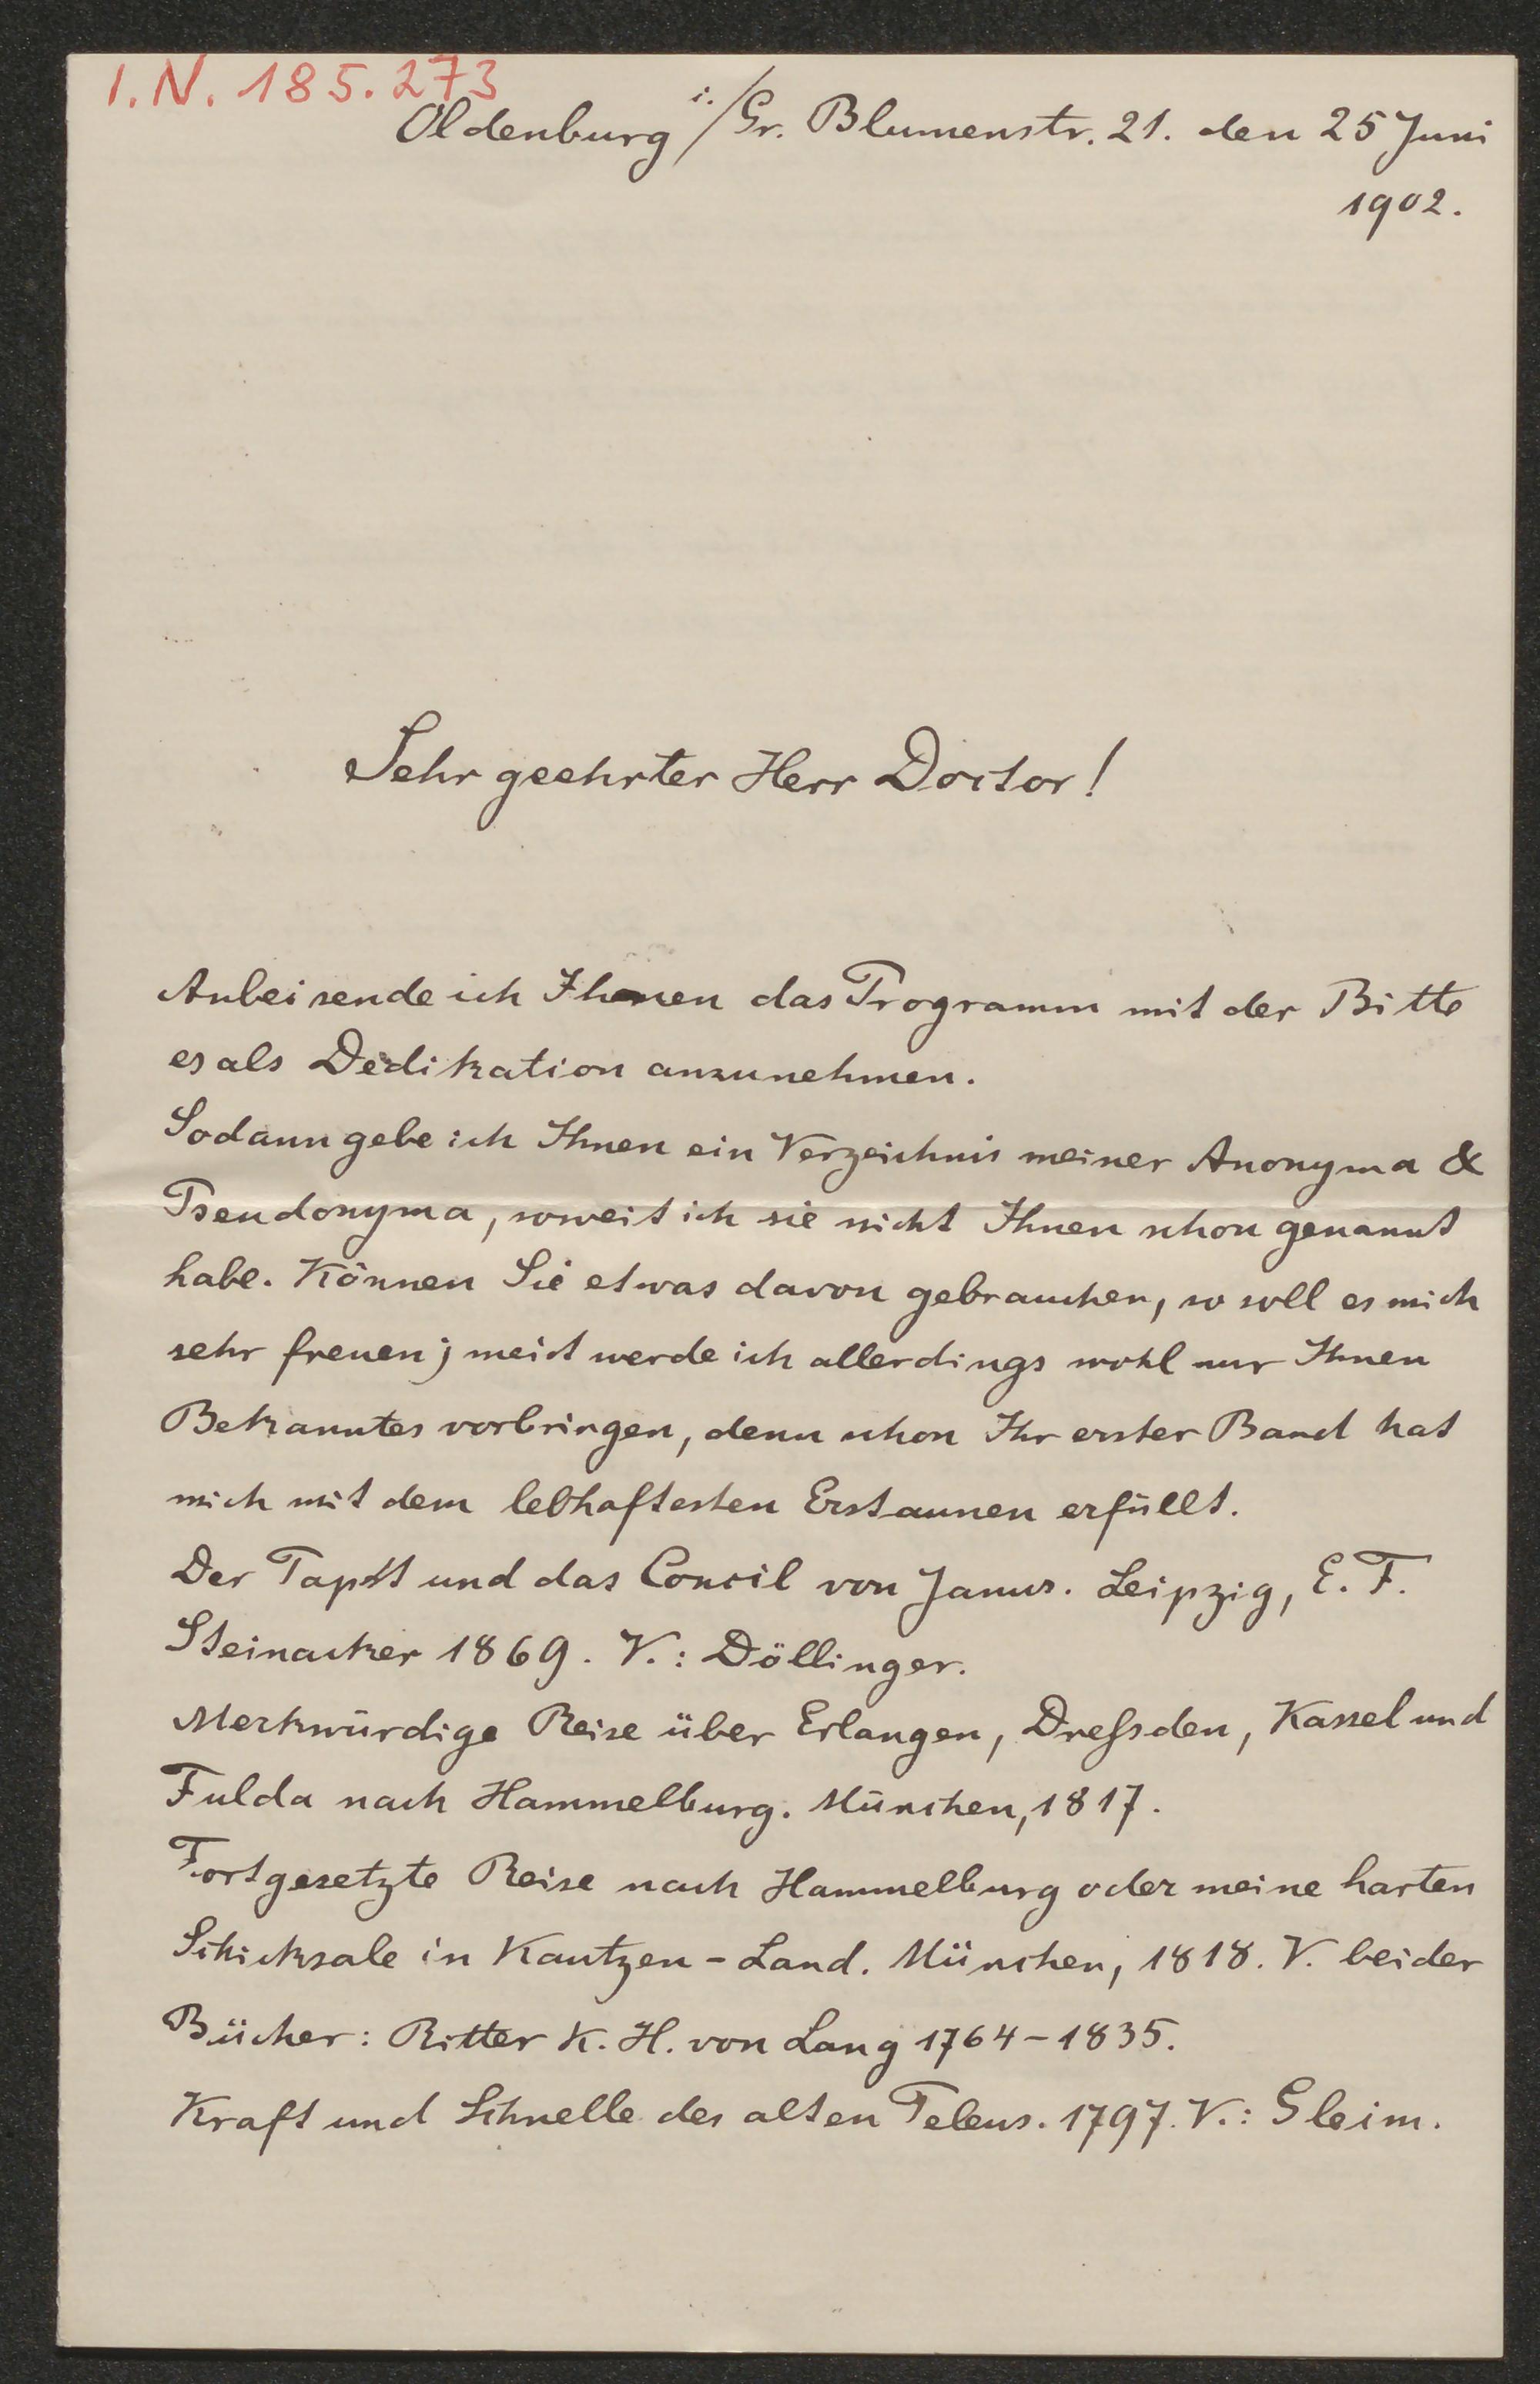 I.N. 185.273
Oldenburg i./Gr. Blumenstr. 21. den 25 Juni
1902.
Sehr geehrter Herr Doctor!
Anbei sende ich Ihnen das Programm mit der Bitte
es als Dedikation anzunehmen.
Sodann gebe ich Ihnen ein Verzeichnis meiner Anonyma &
Pseudonyma, soweit ich sie nicht Ihnen schon genannt
habe. Können Sie etwas davon gebrauchen, so soll es mich
sehr freuen; meist werde ich allerdings wohl nur Ihnen
Bekanntes vorbringen, denn schon Ihr erster Band hat
mich mit dem lebhaftesten Erstaunen erfüllt.
Der Papst und das Concil von Janus. Leipzig, E. F.
Steinacker 1869. V.: Döllinger.
Merkwürdige Reise über Erlangen, Dreßden, Kassel und
Fulda nach Hammelburg. München, 1817.
Fortgesetzte Reise nach Hammelburg oder meine harten
Schicksale in Kautzen-Land. München, 1818. V. beider
Bücher: Ritter K. H. von Lang 1764-1835.
Kraft und Schnelle des alten Peleus. 1797. V.: Gleim.